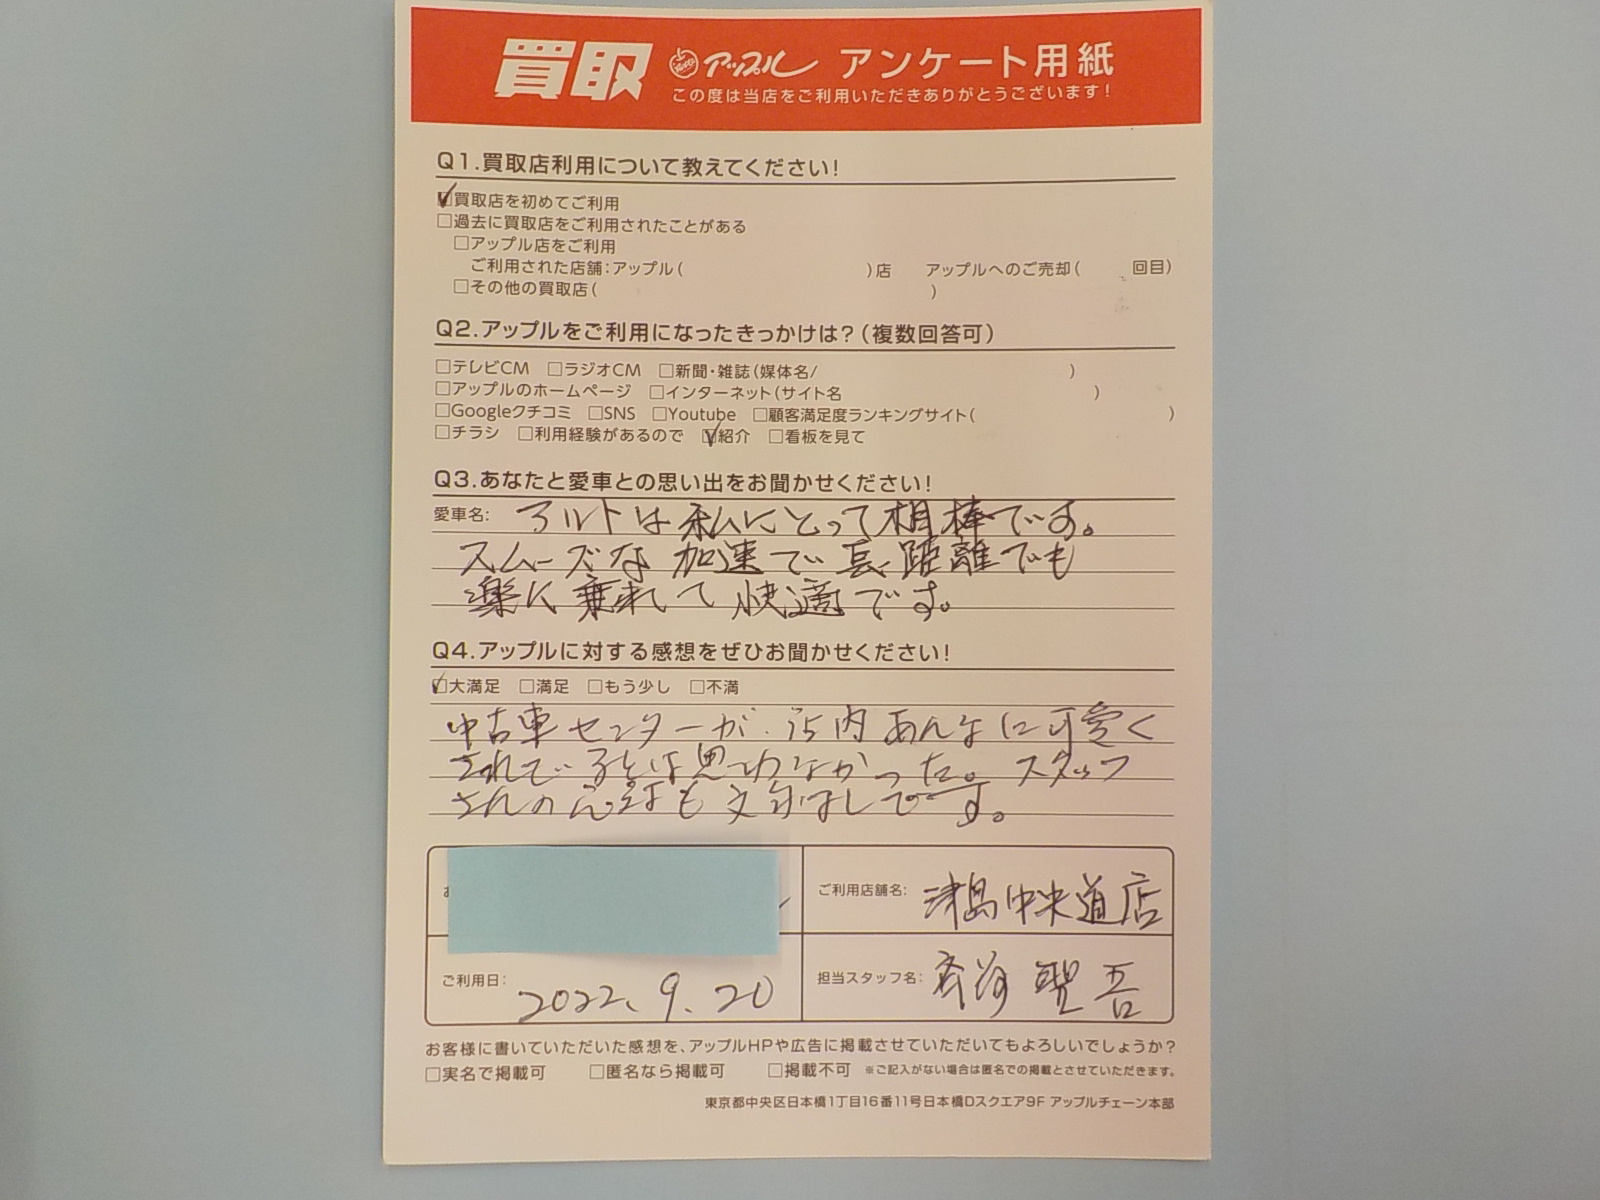 買取 アップル アンケート用紙
この度は当店をご利用いただきありがとうございます!
Q1.買取店利用について教えてください!
☑買取店を初めてご利用
□過去に買取店をご利用されたことがある
□アップル店をご利用
ご利用された店舗:アップル( )店 アップルへのご売却( 回目)
□その他の買取店( )
Q2.アップルをご利用になったきっかけは?(複数回答可)
□テレビCM □ラジオCM □新聞・雑誌(媒体名/ )
□アップルのホームページ □インターネット(サイト名 )
□Googleクチコミ □SNS □Youtube □顧客満足度ランキングサイト( )
□チラシ □利用経験があるので ☑紹介 □看板を見て
Q3.あなたと愛車との思い出をお聞かせください!
愛車名: アルトは私にとって相棒です。
スムーズな加速で長距離でも
楽に乗れて快適です。
Q4.アップルに対する感想をぜひお聞かせください!
☑大満足 □満足 □もう少し □不満
中古車センターが、店内あんなに可愛く
されているとは思わなかった。スタッフ
さんの応対も文句なしです。
ご利用店舗名: 津島中央道店
ご利用日: 2022.9.20
担当スタッフ名: 吾
お客様に書いていただいた感想を、アップルHPや広告に掲載させていただいてもよろしいでしょうか?
□実名で掲載可 □匿名なら掲載可 □掲載不可 ※ご記入がない場合は匿名での掲載とさせていただきます。
東京都中央区日本橋1丁目16番11号日本橋Dスクエア9F アップルチェーン本部